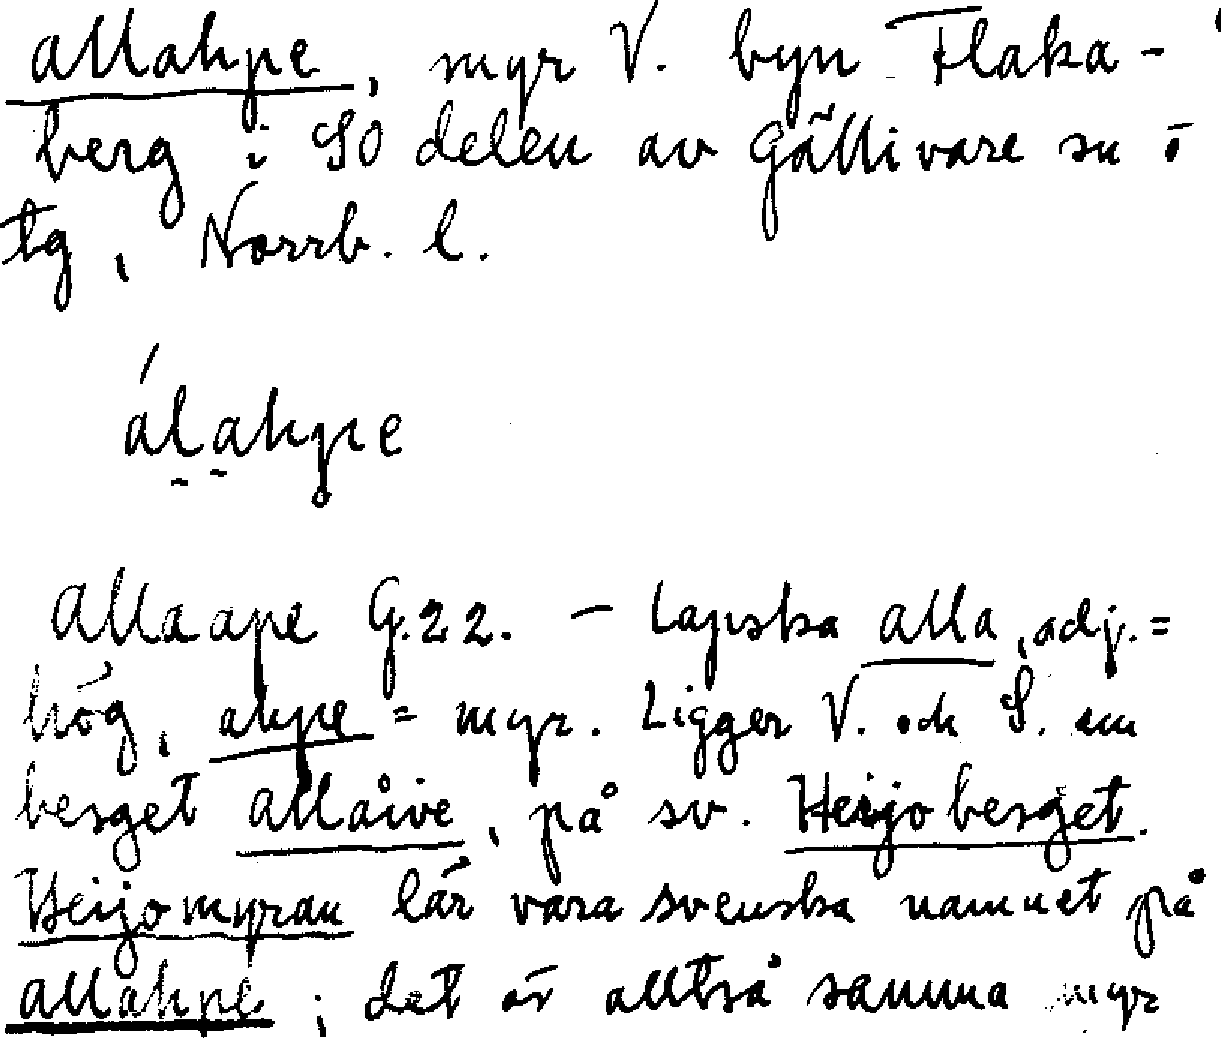 allahpe, myr V. byn Flaka-
berg i SO delen av Gällivare sn o
tg, Norrb. l.
álahpe
Allaape G.22. - Lapska alla, adj. =
hög, ahpe = myr. Ligger V. och S. om
berget Allåive, på sv. Heijoberget.
Heijomyran lär vara svenska namnet på
allahpe; det är alltså samma myr